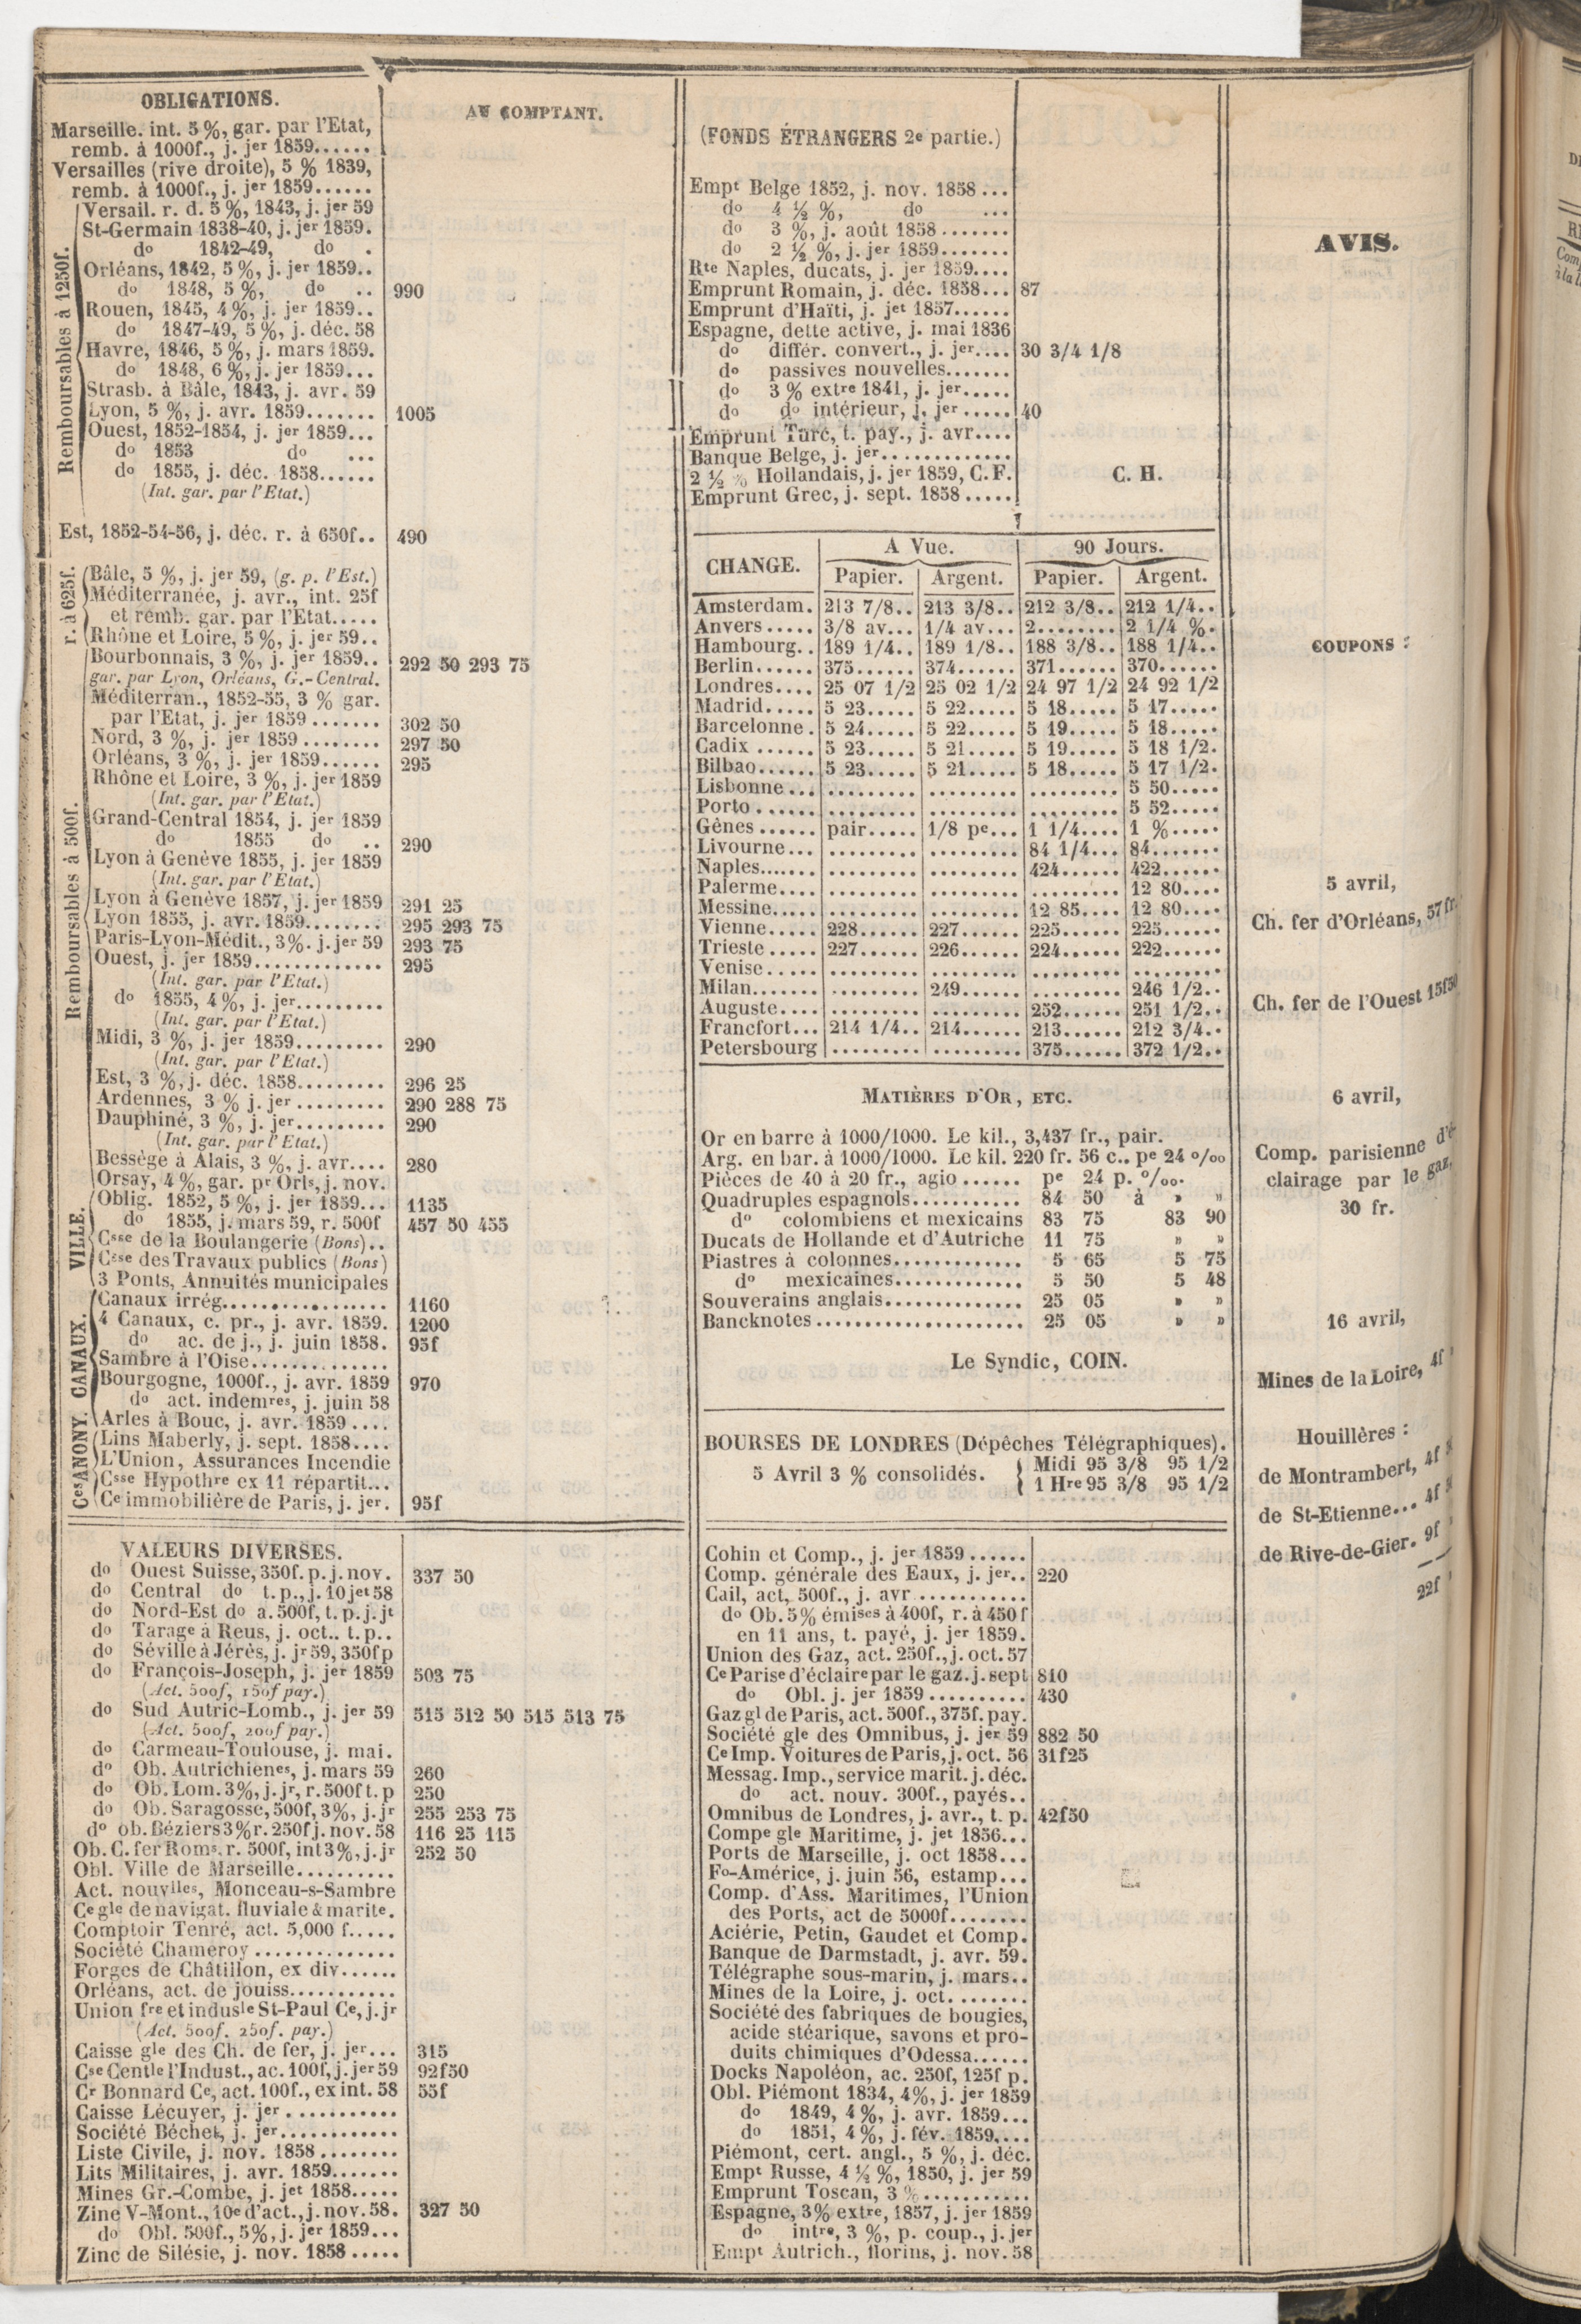 OBLIGATIONS.
AU COMPTANT.
Marseille. int. 5 %, gar. par l'Etat,
remb. à 1000f., j. jer 1859......
Versailles (rive droite), 5 % 1839,
remb. à 1000f., j. jer 1859......
Remboursables à 1250f.
Versail. r. d. 5 %, 1843, j. jer 59
St-Germain 1838-40, j. jer 1859.
do 1842-49, do .
Orléans, 1842, 5 %, j. jer 1859..
do 1848, 5 %, do .. 990
Rouen, 1845, 4 %, j. jer 1859..
do 1847-49, 5 %, j. déc. 58
Havre, 1846, 5 %, j. mars 1859.
do 1848, 6 %, j. jer 1859...
Strasb. à Bâle, 1843, j. avr. 59
Lyon, 5 %, j. avr. 1859....... 1005
Ouest, 1852-1854, j. jer 1859...
do 1853 do ...
do 1855, j. déc. 1858......
(Int. gar. par l'Etat.)
Est, 1852-54-56, j. déc. r. à 650f.. 490
r. à 625f.
Bâle, 5 %, j. jer 59, (g. p. l'Est.)
Méditerranée, j. avr., int. 25f
et remb. gar. par l'Etat.....
Rhône et Loire, 5 %, j. jer 59..
Remboursables à 500f.
Bourbonnais, 3 %, j. jer 1859.. 292 50 293 75
gar. par Lyon, Orléans, G.-Central.
Méditerran., 1852-55, 3 % gar.
par l'Etat, j. jer 1859 ....... 302 50
Nord, 3 %, j. jer 1859 ........ 297 50
Orléans, 3 %, j. jer 1859...... 295
Rhône et Loire, 3 %, j. jer 1859
(Int. gar. par l'Etat.)
Grand-Central 1854, j. jer 1859
do 1855 do .. 290
Lyon à Genève 1855, j. jer 1859
(Int. gar. par l'Etat.)
Lyon à Genève 1857, j. jer 1859 291 25
Lyon 1855, j. avr. 1859........ 295 293 75
Paris-Lyon-Médit., 3%. j. jer 59 293 75
Ouest, j. jer 1859............. 295
(Int. gar. par l'Etat.)
do 1855, 4 %, j. jer.........
(Int. gar. par l'Etat.)
Midi, 3 %, j. jer 1859......... 290
(Int. gar. par l'Etat.)
Est, 3 %, j. déc. 1858......... 296 25
Ardennes, 3 % j. jer ......... 290 288 75
Dauphiné, 3 %, j. jer......... 290
(Int. gar. par l'Etat.)
Bessège à Alais, 3 %, j. avr.... 280
Orsay, 4 %, gar. pr Orls, j. nov.
VILLE.
Oblig. 1852, 5 %, j. jer 1859... 1135
do 1855, j. mars 59, r. 500f 457 50 455
Csse de la Boulangerie (Bons)..
Csse des Travaux publics (Bons)
3 Ponts, Annuités municipales
CANAUX.
Canaux irrég................. 1160
4 Canaux, c. pr., j. avr. 1859. 1200
do ac. de j., j. juin 1858. 95f
Sambre à l'Oise..............
Bourgogne, 1000f., j. avr. 1859 970
do act. indemres, j. juin 58
Arles à Bouc, j. avr. 1859 ....
Ces ANONY.
Lins Maberly, j. sept. 1858....
L'Union, Assurances Incendie
Csse Hypothre ex 11 répartit...
Ce immobilière de Paris, j. jer. 95f
VALEURS DIVERSES.
do Ouest Suisse, 350f. p. j. nov. 337 50
do Central do t. p., j. 10 jet 58
do Nord-Est do a. 500f, t. p. j. jt
do Tarage à Reus, j. oct.. t. p..
do Séville à Jérès, j. jr 59, 350f p
do François-Joseph, j. jer 1859 503 75
(Act. 500f, 150f pay.)
do Sud Autric-Lomb., j. jer 59 515 512 50 515 513 75
(Act. 500f, 200f pay.)
do Carmeau-Toulouse, j. mai.
do Ob. Autrichienes, j. mars 59 260
do Ob. Lom. 3%, j. jr, r. 500f t. p 250
do Ob. Saragosse, 500f, 3%, j. jr 255 253 75
do ob. Béziers 3% r. 250f j. nov. 58 116 25 115
Ob. C. fer Roms, r. 500f, int 3%, j. jr 252 50
Obl. Ville de Marseille..........
Act. nouvlles, Monceau-s-Sambre
Ce gle de navigat. fluviale & marite.
Comptoir Tenré, act. 5,000 f.....
Société Chameroy ..............
Forges de Châtillon, ex div......
Orléans, act. de jouiss...........
Union fre et indusle St-Paul Ce, j. jr
(Act. 500f. 250f. pay.)
Caisse gle des Ch. de fer, j. jer... 315
Cse Centle l'Indust., ac. 100f, j. jer 59 92f50
Cr Bonnard Ce, act. 100f., ex int. 58 55f
Caisse Lécuyer, j. jer ...........
Société Béchet, j. jer............
Liste Civile, j. nov. 1858 ........
Lits Militaires, j. avr. 1859.......
Mines Gr.-Combe, j. jet 1858.....
Zinc V-Mont., 10e d'act., j. nov. 58. 327 50
do Obl. 500f., 5%, j. jer 1859...
Zinc de Silésie, j. nov. 1858 .....
(FONDS ÉTRANGERS 2e partie.)
Empt Belge 1852, j. nov. 1858 ...
do 4 ½ %, do ...
do 3 %, j. août 1858 .......
do 2 ½ %, j. jer 1859.......
Rte Naples, ducats, j. jer 1859....
Emprunt Romain, j. déc. 1858... 87
Emprunt d'Haïti, j. jet 1857......
Espagne, dette active, j. mai 1836
do différ. convert., j. jer.... 30 3/4 1/8
do passives nouvelles.......
do 3 % extre 1841, j. jer.....
do do intérieur, j. jer ..... 40
Emprunt Turc, t. pay., j. avr....
Banque Belge, j. jer.............
2 ½ % Hollandais, j. jer 1859, C. F. C. H.
Emprunt Grec, j. sept. 1858 .....
CHANGE. A Vue. 90 Jours.
Papier. Argent. Papier. Argent.
Amsterdam. 213 7/8.. 213 3/8.. 212 3/8.. 212 1/4..
Anvers..... 3/8 av... 1/4 av... 2........ 2 1/4 %.
Hambourg.. 189 1/4.. 189 1/8.. 188 3/8.. 188 1/4..
Berlin...... 375...... 374...... 371...... 370......
Londres.... 25 07 1/2 25 02 1/2 24 97 1/2 24 92 1/2
Madrid..... 5 23..... 5 22..... 5 18..... 5 17.....
Barcelonne . 5 24..... 5 22..... 5 19..... 5 18.....
Cadix ...... 5 23..... 5 21..... 5 19..... 5 18 1/2.
Bilbao...... 5 23..... 5 21..... 5 18..... 5 17 1/2.
Lisbonne ... ......... ......... ......... 5 50.....
Porto ...... ......... ......... ......... 5 52.....
Gênes ...... pair..... 1/8 pe... 1 1/4.... 1 %.....
Livourne... ......... ......... 84 1/4... 84.......
Naples....... ......... ......... 424...... 422......
Palerme.... ......... ......... ......... 12 80....
Messine..... ......... ......... 12 85.... 12 80....
Vienne..... 228...... 227...... 225...... 225......
Trieste ..... 227...... 226...... 224...... 222......
Venise..... ......... ......... ......... .........
Milan....... ......... 249...... ......... 246 1/2..
Auguste.... ......... ......... 252...... 251 1/2..
Francfort... 214 1/4.. 214...... 213...... 212 3/4..
Petersbourg ......... ......... 375...... 372 1/2..
MATIÈRES D'OR, ETC.
Or en barre à 1000/1000. Le kil., 3,437 fr., pair.
Arg. en bar. à 1000/1000. Le kil. 220 fr. 56 c.. pe 24 o/oo
Pièces de 40 à 20 fr., agio ...... pe 24 p. o/oo.
Quadruples espagnols........... 84 50 à » »
do colombiens et mexicains 83 75 83 90
Ducats de Hollande et d'Autriche 11 75 » »
Piastres à colonnes............. 5 65 5 75
do mexicaines............. 5 50 5 48
Souverains anglais.............. 25 05 » »
Bancknotes ..................... 25 05 » »
Le Syndic, COIN.
BOURSES DE LONDRES (Dépêches Télégraphiques).
5 Avril 3 % consolidés.
Midi 95 3/8 95 1/2
1 Hre 95 3/8 95 1/2
Cohin et Comp., j. jer 1859 ......
Comp. générale des Eaux, j. jer.. 220
Cail, act, 500f., j. avr ............
do Ob. 5% émises à 400f, r. à 450f
en 11 ans, t. payé, j. jer 1859.
Union des Gaz, act. 250f., j. oct. 57
Ce Parise d'éclaire par le gaz. j. sept 810
do Obl. j. jer 1859 .......... 430
Gaz gl de Paris, act. 500f., 375f. pay.
Société gle des Omnibus, j. jer 59 882 50
Ce Imp. Voitures de Paris, j. oct. 56 31f25
Messag. Imp., service marit. j. déc.
do act. nouv. 300f., payés..
Omnibus de Londres, j. avr., t. p. 42f50
Compe gle Maritime, j. jet 1856...
Ports de Marseille, j. oct 1858...
Fo-Américe, j. juin 56, estamp...
Comp. d'Ass. Maritimes, l'Union
des Ports, act de 5000f........
Aciérie, Petin, Gaudet et Comp.
Banque de Darmstadt, j. avr. 59.
Télégraphe sous-marin, j. mars..
Mines de la Loire, j. oct. .......
Société des fabriques de bougies,
acide stéarique, savons et pro-
duits chimiques d'Odessa......
Docks Napoléon, ac. 250f, 125f p.
Obl. Piémont 1834, 4%, j. jer 1859
do 1849, 4 %, j. avr. 1859...
do 1851, 4 %, j. fév. 1859....
Piémont, cert. angl., 5 %, j. déc.
Empt Russe, 4 ½ %, 1850, j. jer 59
Emprunt Toscan, 3 % ..........
Espagne, 3% extre, 1857, j. jer 1859
do intre, 3 %, p. coup., j. jer
Empt Autrich., florins, j. nov. 58
AVIS.
COUPONS :
5 avril,
Ch. fer d'Orléans, 57 fr.
Ch. fer de l'Ouest 15f50
6 avril,
Comp. parisienne d'é-
clairage par le gaz,
30 fr.
16 avril,
Mines de la Loire, 4f
Houillères :
de Montrambert, 4f
de St-Etienne... 4f
de Rive-de-Gier. 9f
22f